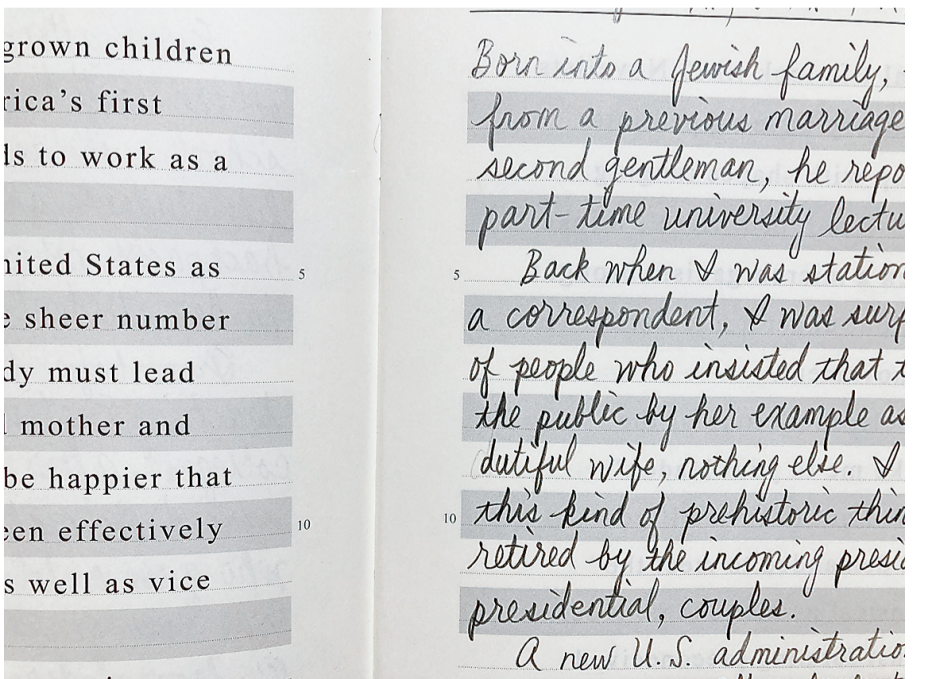 grown children
rica's first
ls to work as a
nited States as
5
e sheer number
dy must lead
l mother and
be happier that
een effectively
10
s well as vice
Born into a Jewish family,
from a previous marriage
second gentleman, he repo
part-time university lectu
5
Back when I was station
a correspondent, I was surp
of people who insisted that t
the public by her example as
dutiful wife, nothing else. I
10
this kind of prehistoric thin
retired by the incoming presid
presidential, couples.
A new U.S. administratio